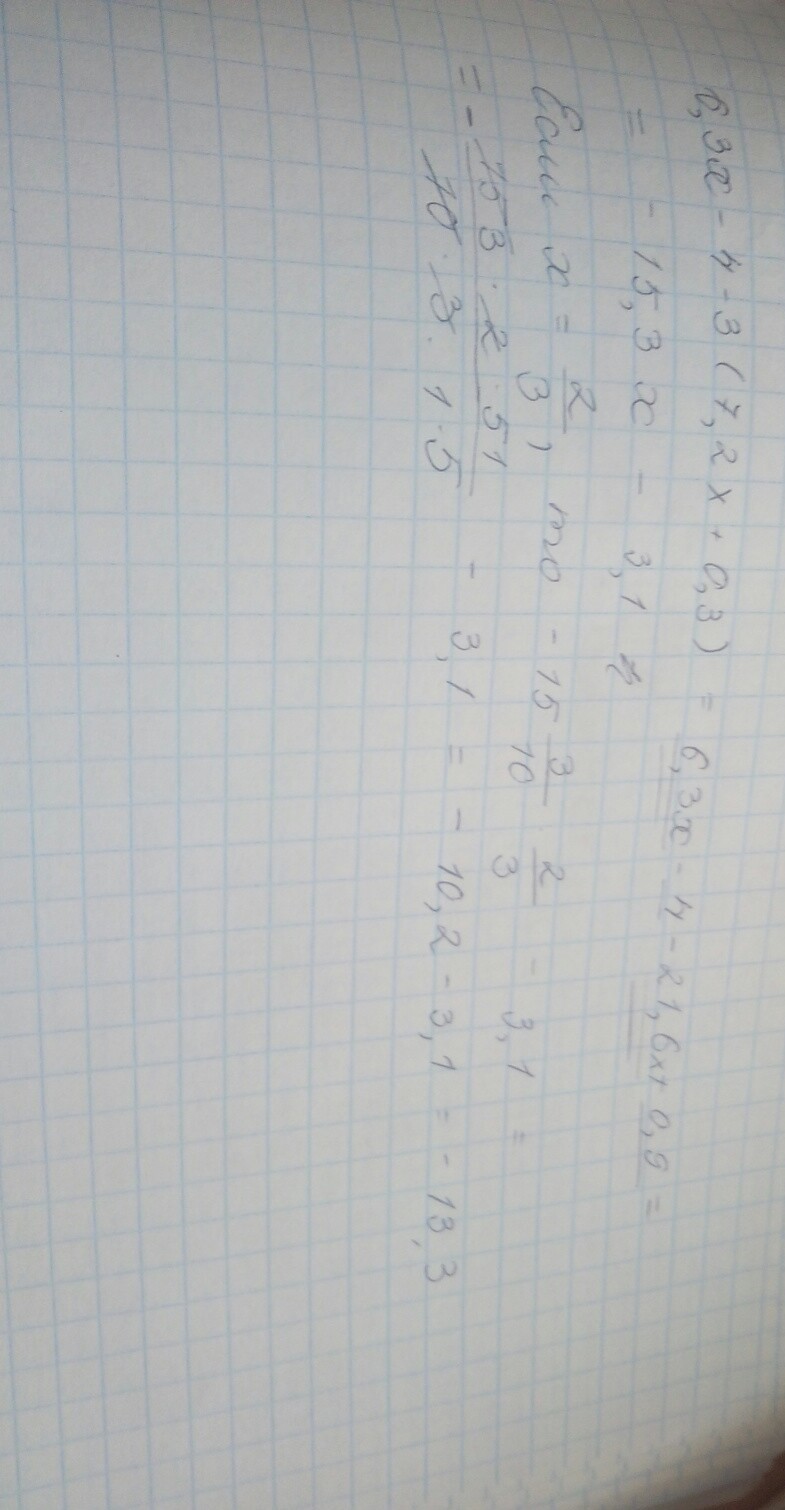 6,3x - 4 - 3 (7,2x + 0,3) = 6,3x - 4 - 21,6x + 0,9 =
= - 15,3 x - 3,1
Если x = 2/3, то - 15 3/10 · 2/3 - 3,1 =
= - 153 · 2 · 51 / 10 · 3 · 1 · 5 - 3,1 = - 10,2 - 3,1 = - 13,3